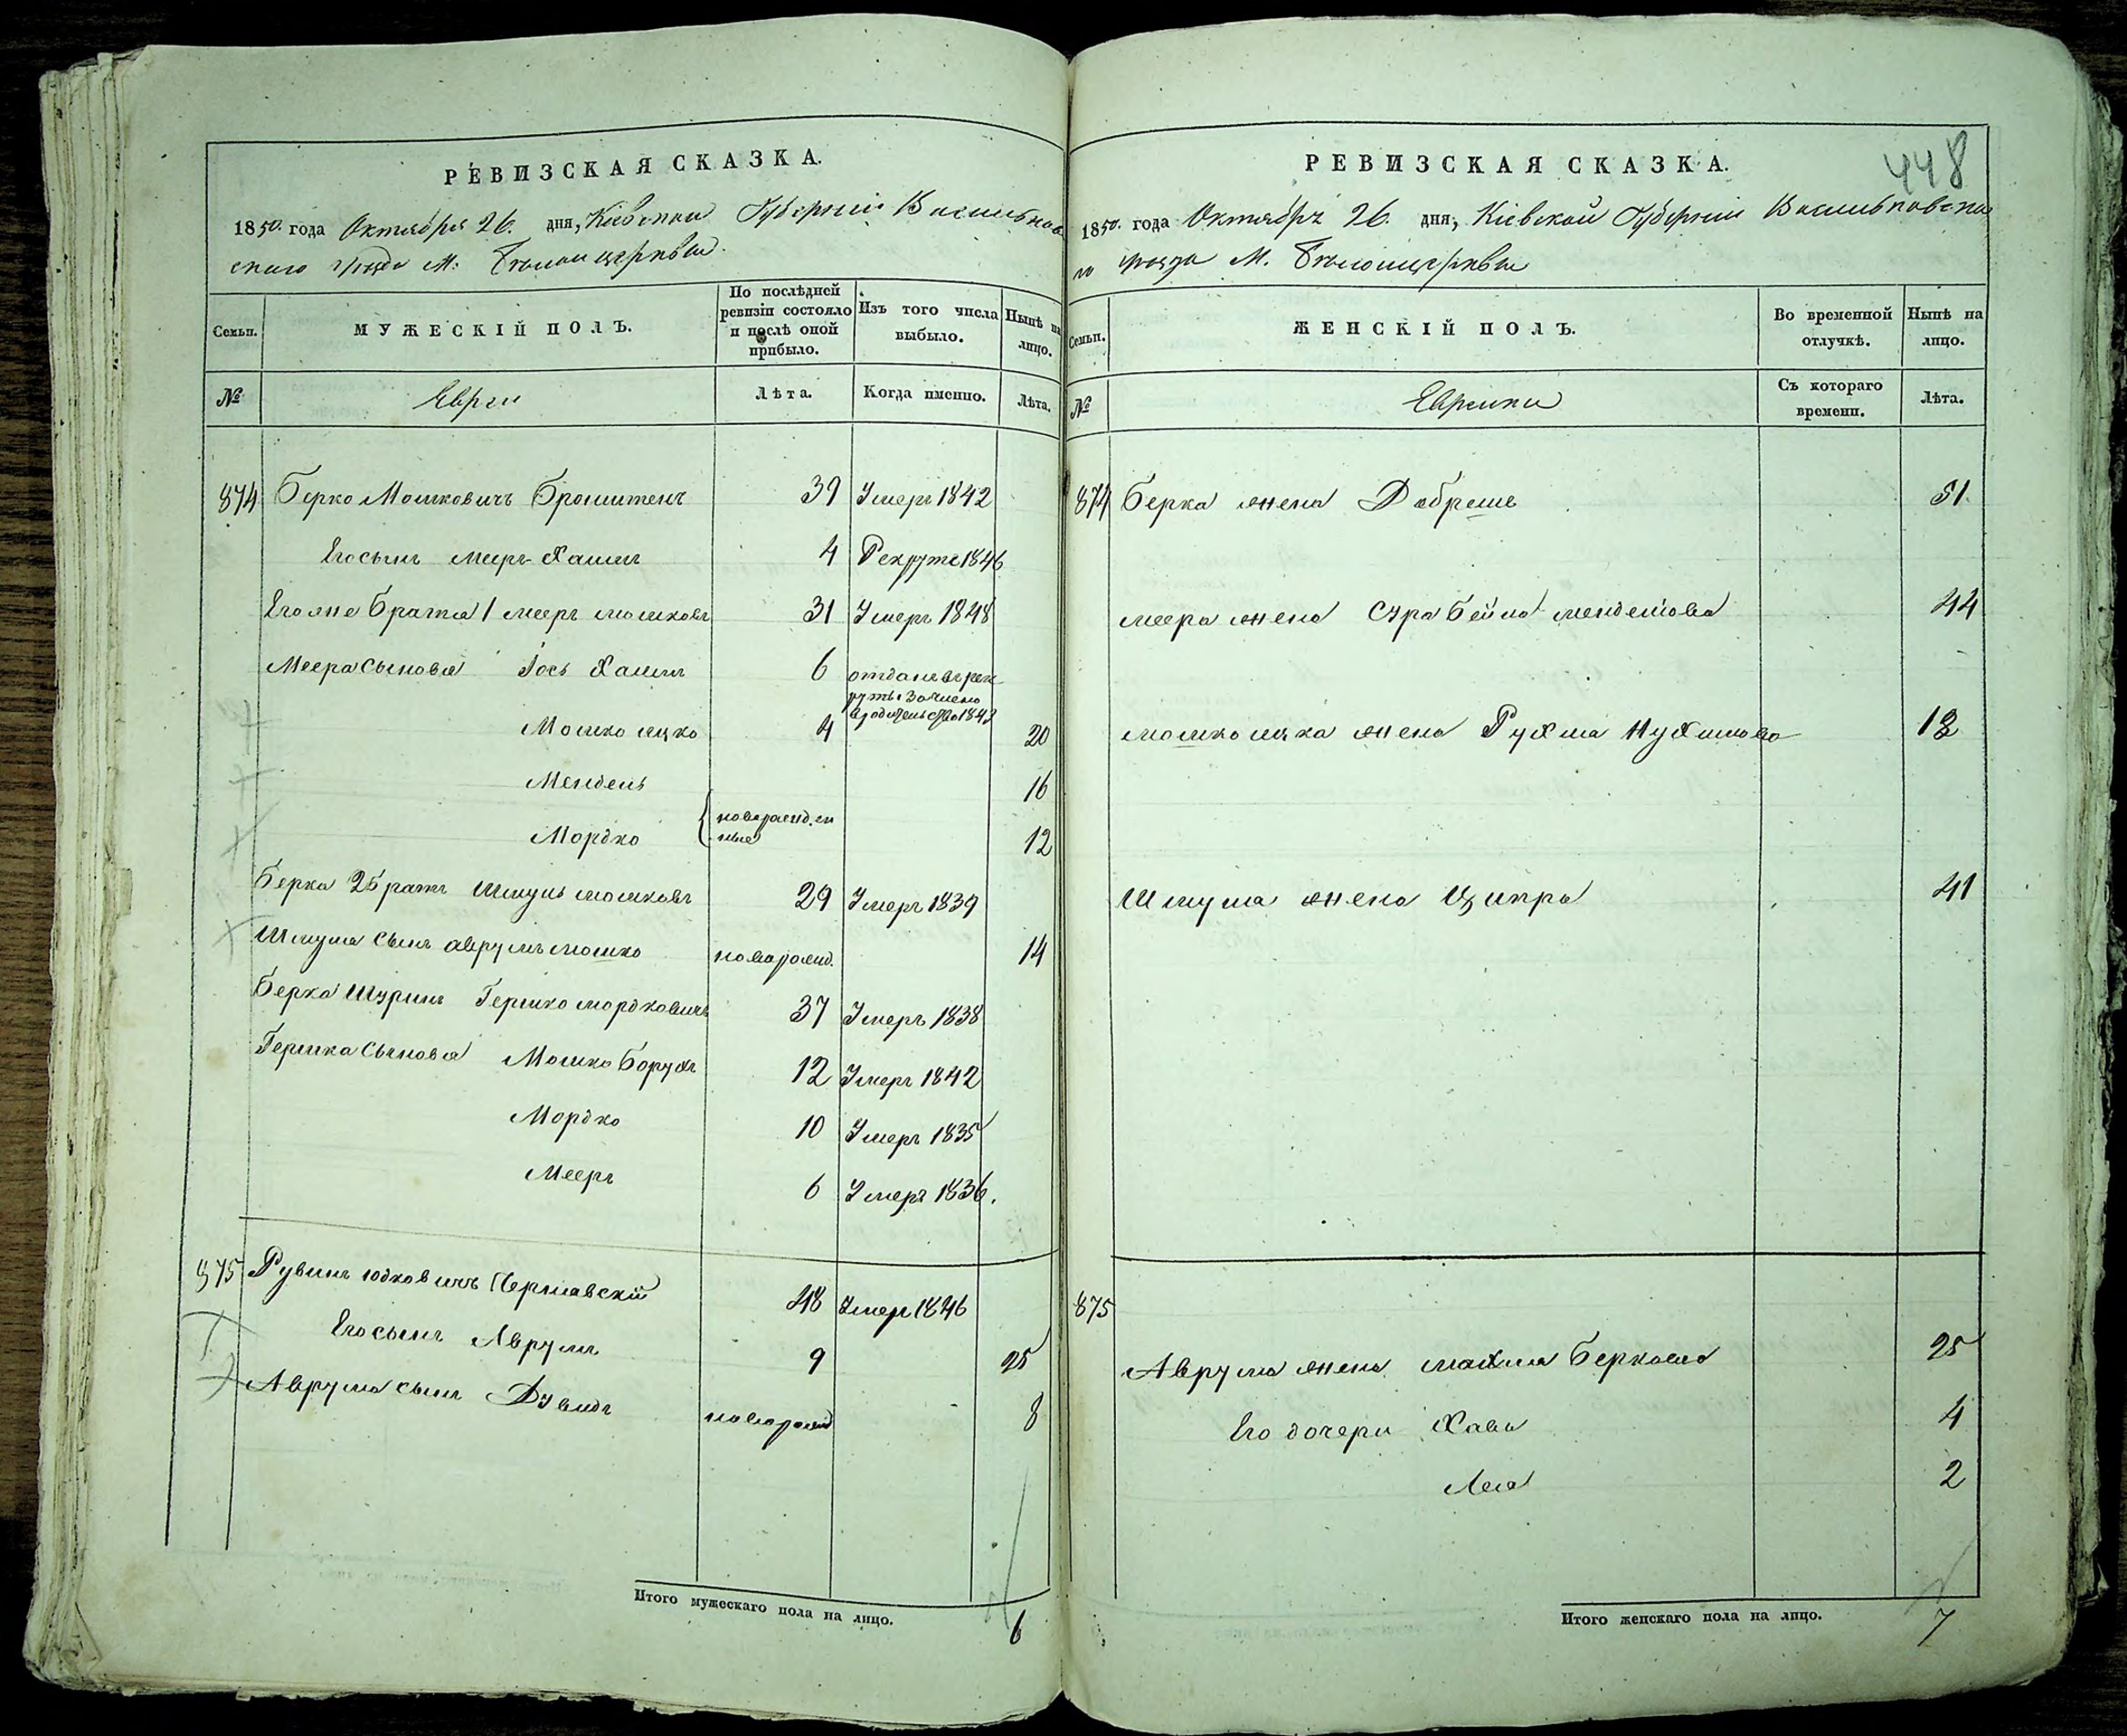 РЕВИЗСКАЯ СКАЗКА.
1850. года Октября 26. дня, Кіевской Губерніи Васильков
скаго уѣзда М. Бѣлоицеркви.
Семьи. МУЖЕСКІЙ ПОЛЪ. По послѣдней ревизіи состояло и послѣ оной прибыло. Изъ того числа выбыло. Нынѣ на лицо.
№ Евреи Лѣта. Когда именно. Лѣта.
874 Берко Мошковичъ 39 Умеръ 1842
Его сынъ Меиръ Хаимъ 4 Рекрутъ 1846
Его же братья 1 Мееръ Мошковъ 31 Умеръ 1848
Меера сыновья Іось Хаимъ 6 отданъ въ рек
руты
1843
Мошко Ицко 4 20
Мендель 16
новорожден
ные
Мордко 12
Берка 2 братъ Шмуль Мошковъ 29 Умеръ 1839
Шмуля сынъ Аврумъ Мошко новорожд. 14
Берка Шуринъ Гершко Мордковичъ 37 Умеръ 1838
Гершка сыновья Мошко Борухъ 12 Умеръ 1842
Мордко 10 Умеръ 1835
Мееръ 6 Умеръ 1836.
875 Рувинъ Юдковичъ Чернявскій 48 Умеръ 1846
Его сынъ Аврумъ 9 25
Аврума сынъ Дувидъ новорожд 8
Итого мужескаго пола на лицо. 6
448
РЕВИЗСКАЯ СКАЗКА.
1850. года Октября 26. дня, Кіевской Губерніи Васильковска
го уѣзда М. Бѣлоицеркви
Семьи. ЖЕНСКІЙ ПОЛЪ. Во временной отлучкѣ. Нынѣ на лицо.
№ Еврейки Съ котораго времени. Лѣта.
874 Берка жена Добрешъ 51
Меера жена Сура Бейла Менделова 44
Мошко Ицка жена Рухля Нухимова 18
Шмуля жена Ципра 41
875
Аврума жена Беркова 25
Его дочери Хава 4
Лея 2
Итого женскаго пола на лицо. 7